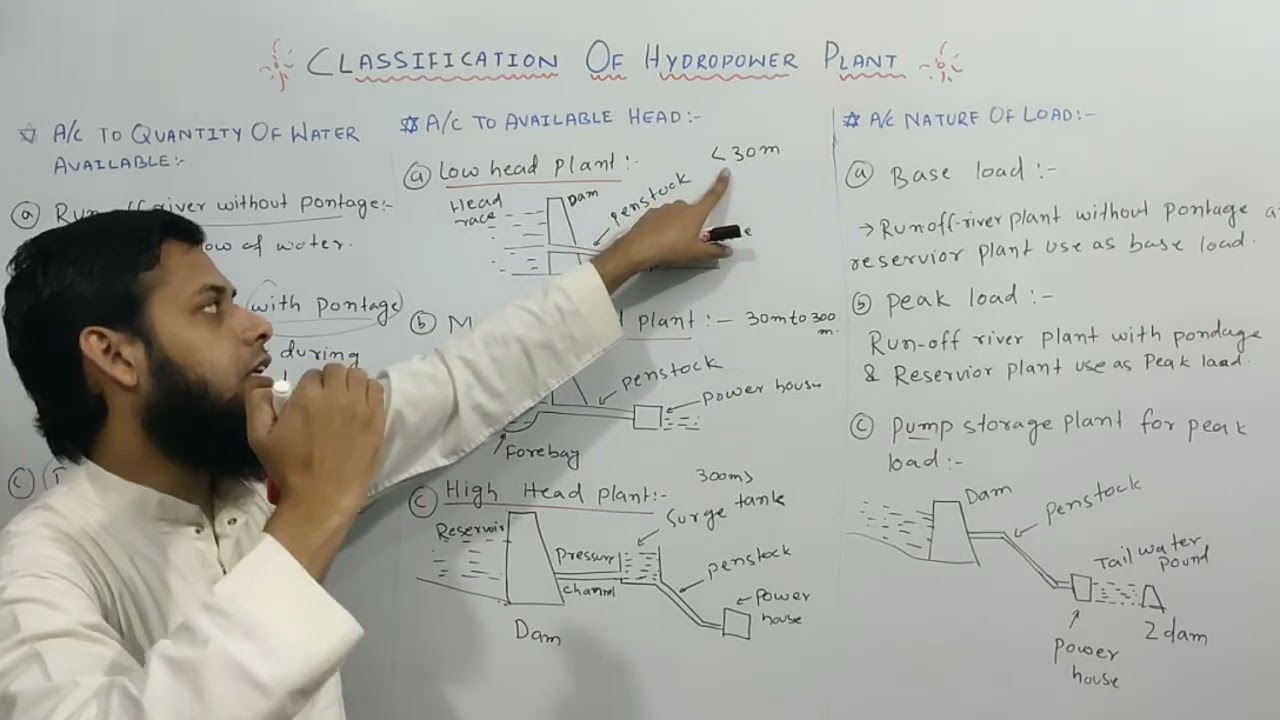 CLASSIFICATION OF HYDROPOWER PLANT
☆ A/C TO QUANTITY OF WATER
AVAILABLE:-
(a) Run-off river without pontage:-
ow of water.
(with pontage)
during
(c)
☆ A/C TO AVAILABLE HEAD:-
(a) Low head plant:-
<30m
Head
race
Dam
penstock
(b) M plant:- 30m to 300
m.
penstock
power house
Forebay
(c) High Head plant:-
300m>
Reservoir
surge tank
pressure
channel
penstock
power
house
Dam
☆ A/C NATURE OF LOAD:-
(a) Base load:-
→ Runoff-river plant without pontage a
reservior plant use as base load.
(b) peak load:-
Run-off river plant with pondage
& Reservior plant use as Peak load.
(c) pump storage plant for peak
load:-
Dam
penstock
Tail water
pound
2 dam
power
house